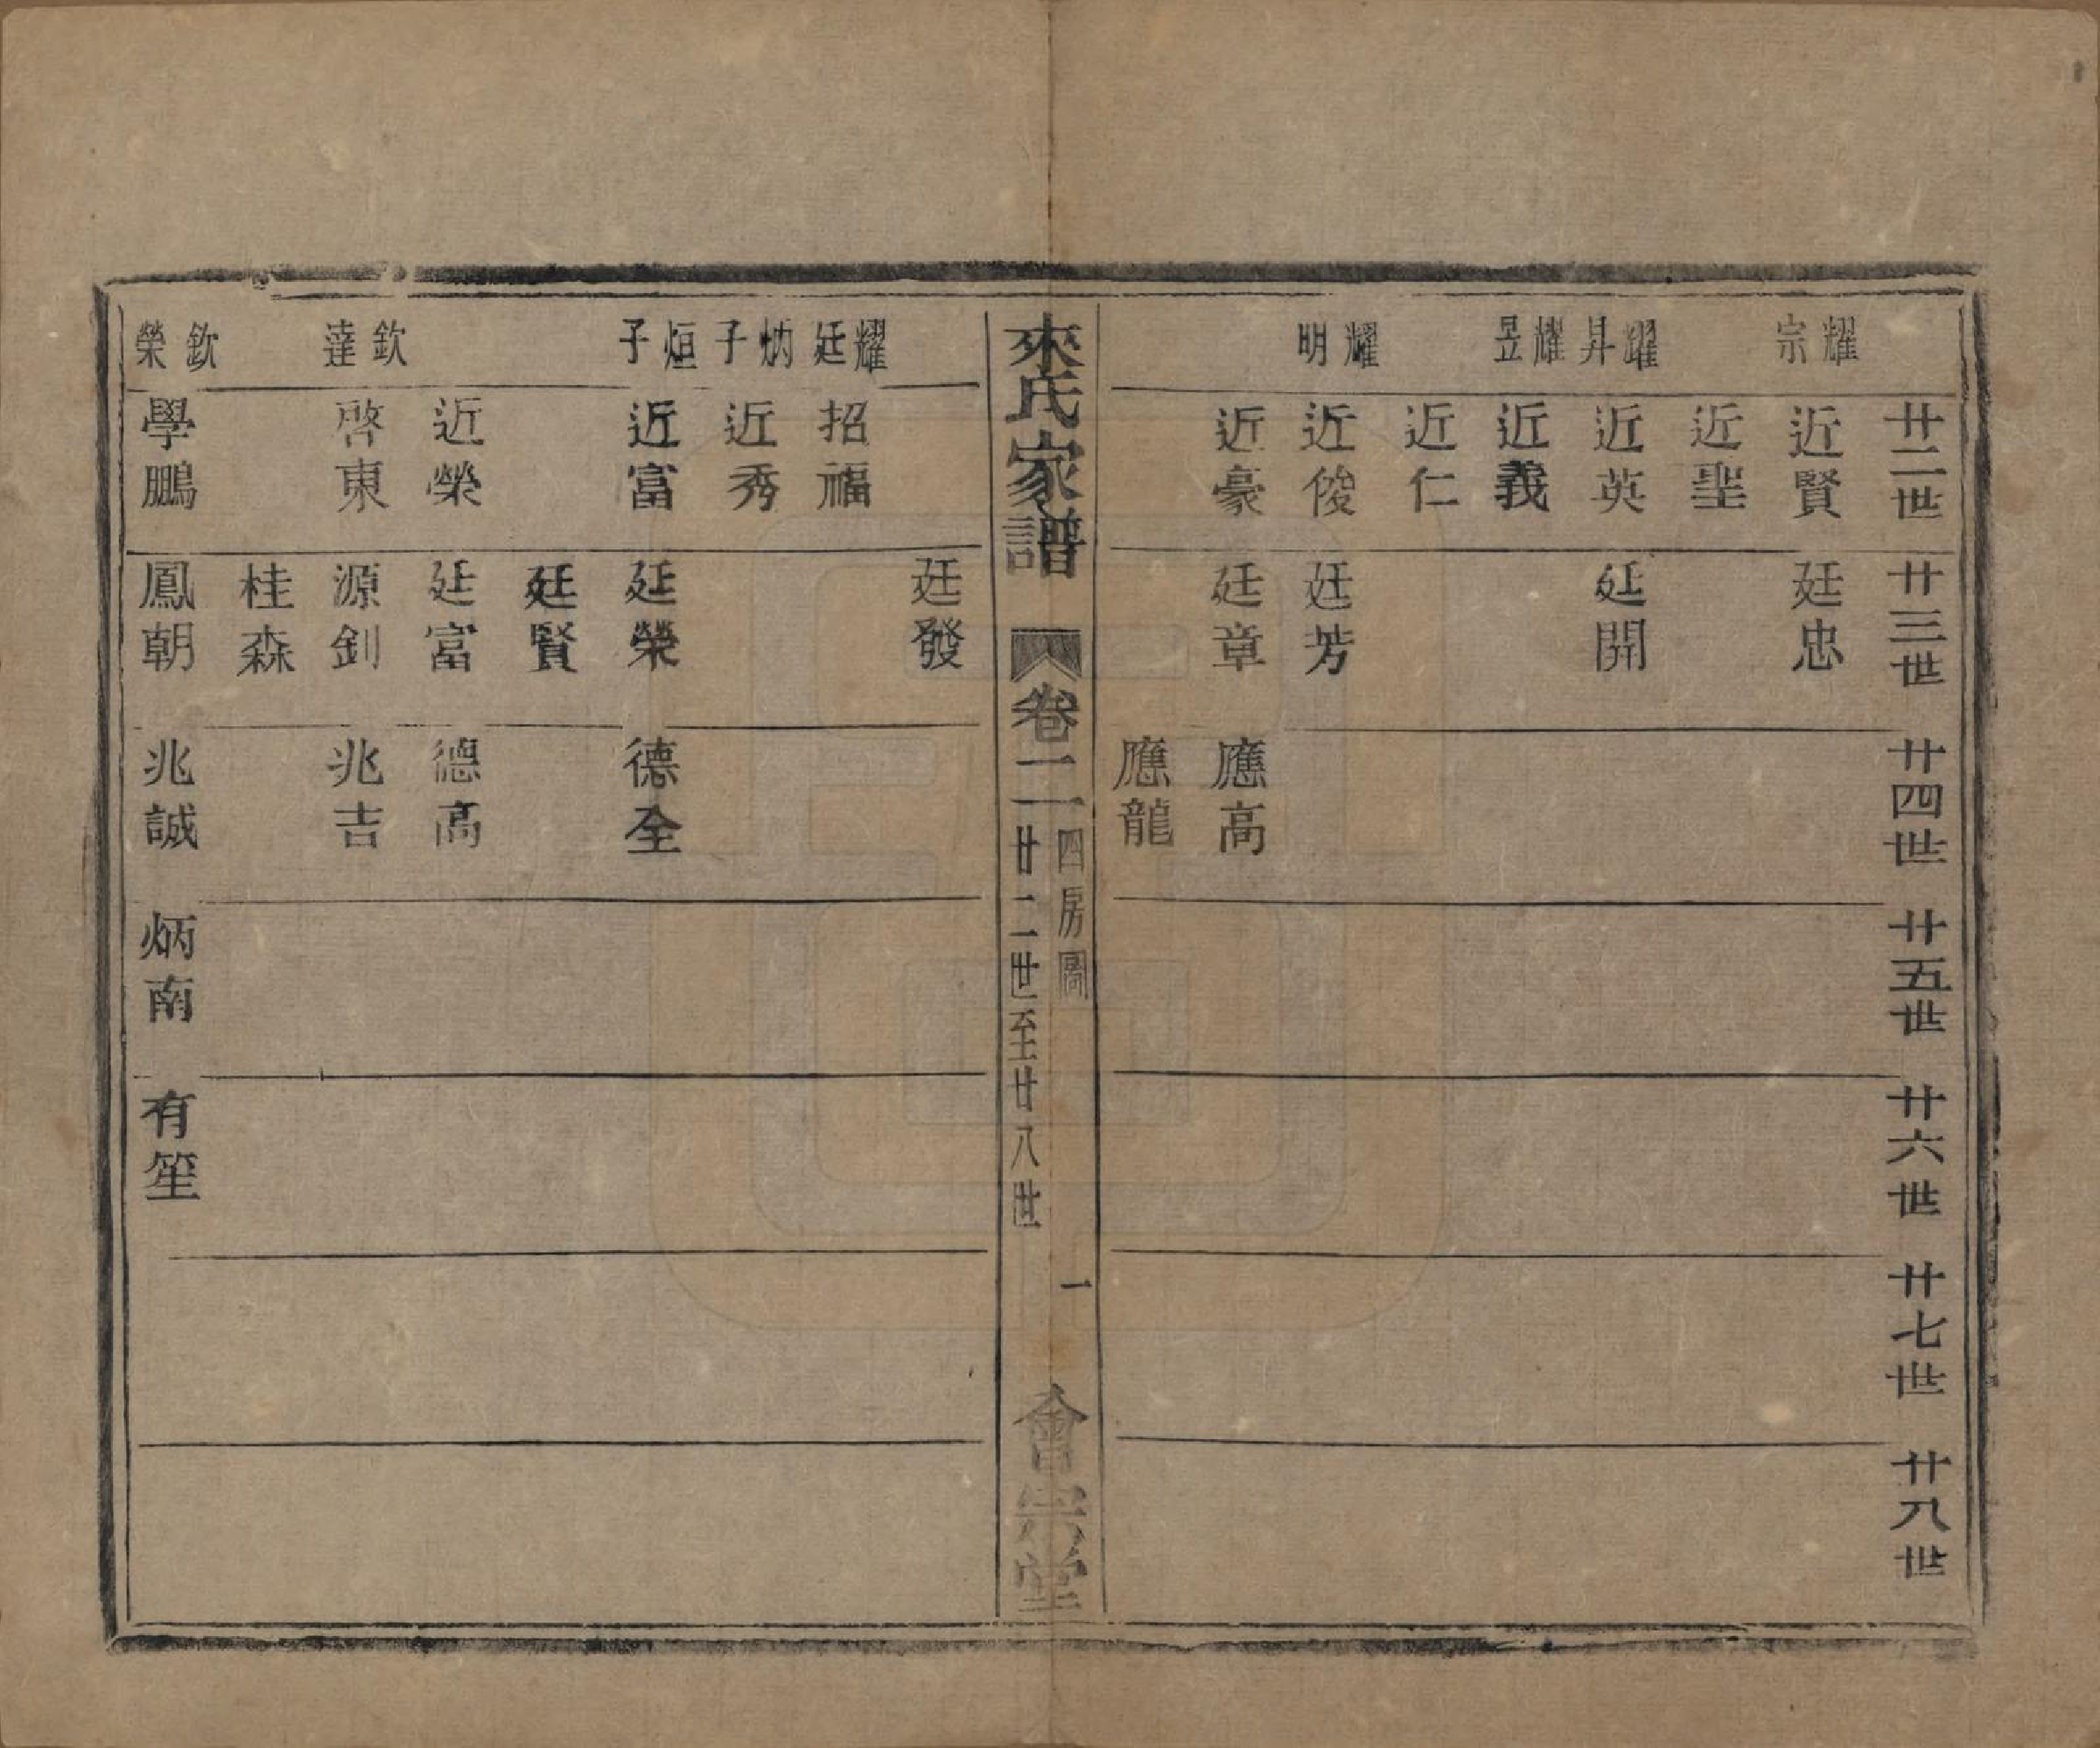 廿二世
廿三世
廿四世
廿五世
廿六世
廿七世
廿八世
耀宗
近賢
廷忠
近聖
耀昇
近英
廷開
耀昱
近義
近仁
耀明
近俊
廷芳
近豪
廷章
應高
應龍
來氏家譜
卷二
四房圖
廿二世至廿八世
一
會宗堂
廷發
耀廷
招福
炳子
近秀
烜子
近富
廷榮
德全
廷賢
近榮
廷富
德高
欽達
啓東
源釗
兆吉
桂森
欽榮
學鵬
鳳朝
兆誠
炳南
有笙